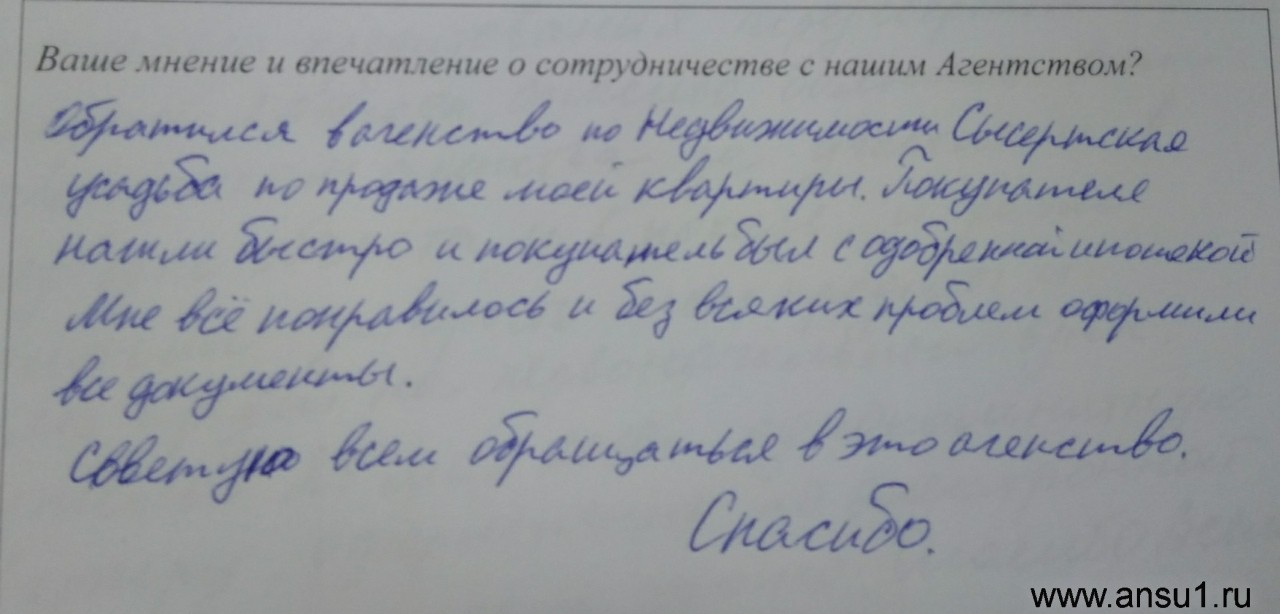 Ваше мнение и впечатление о сотрудничестве с нашим Агентством?
Обратился в агенство по Недвижимости Сысертская
усадьба по продаже моей квартиры. Покупателя
нашли быстро и покупатель был с одобренной ипотекой
Мне всё понравилось и без всяких проблем оформили
все документы.
Советую всем обращаться в это агенство.
Спасибо.
www.ansu1.ru